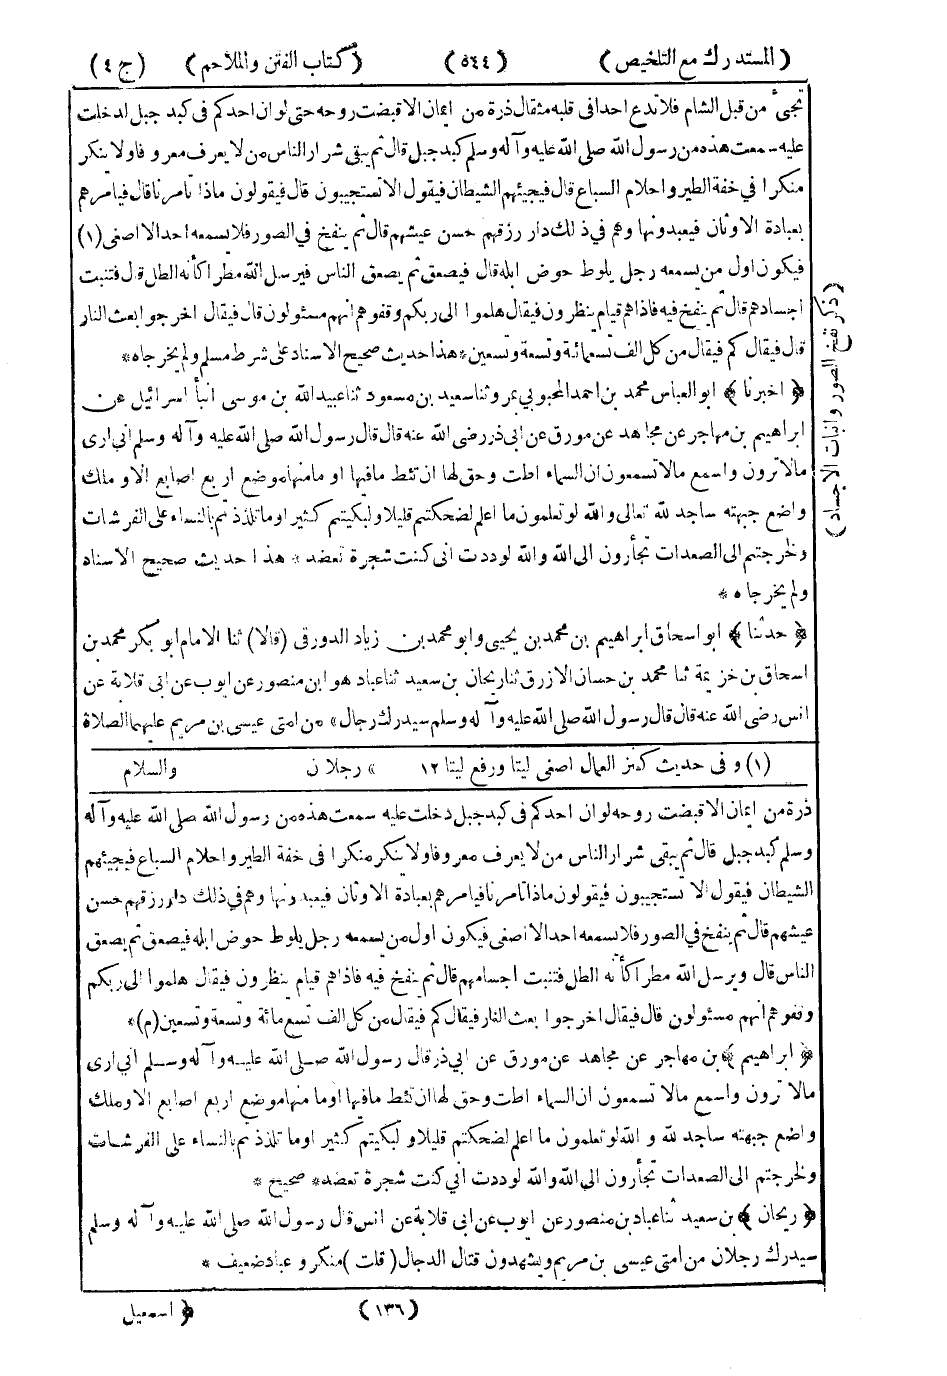 (المستدرك مع التلخيص) (٥٤٤) (كتاب الفتن والملاحم) (ج ٤)
تجىٔ من قبل الشام فلا تدع احدا فى قلبه مثقال ذرة من ايمان الا قبضت روحه حتى لو ان احدكم فى كبد جبل لدخلت
عليه - سمعت هذه من رسول الله صلى الله عليه وآله وسلم كبد جبل قال ثم يبقى شرار الناس من لا يعرف معروفا ولا ينكر
منكرا فى خفة الطير واحلام السباع قال فيجيئهم الشيطان فيقول الا تستجيبون قال فيقولون ماذا تامرنا قال فيامرهم
بعبادة الاوثان فيعبدونها وهم فى ذلك دار رزقهم حسن عيشهم قال ثم ينفخ فى الصور فلا يسمعه احد الا اصغى (١)
فيكون اول من يسمعه رجل يلوط حوض ابله قال فيصعق ثم يصعق الناس فيرسل الله مطرا كأنه الطل قال فتنبت
اجسادهم قال ثم ينفخ فيه فاذا هم قيام ينظرون فيقال هلموا الى ربكم وقفوهم انهم مسئولون قال فيقال اخرجوا بعث النار
قال فيقال كم فيقال من كل الف تسعمائة وتسعة وتسعين * هذا حديث صحيح الاسناد على شرط مسلم ولم يخرجاه *
﴿ اخبرنا ﴾ ابو العباس محمد بن احمد المحبوبى بمرو ثنا سعيد بن مسعود ثنا عبيد الله بن موسى انبأ اسرائيل عن
ابراهيم بن مهاجر عن مجاهد عن مورق عن ابى ذر رضى الله عنه قال قال رسول الله صلى الله عليه وآله وسلم انى ارى
مالا ترون واسمع مالا تسمعون ان السماء اطت وحق لها ان تئط مافيها او مامنها موضع اربع اصابع الا وملك
واضع جبهته ساجد لله تعالى والله لو تعلمون ما اعلم لضحكتم قليلا ولبكيتم كثيرا وما تلذذتم بالنساء على الفرشات
ولخرجتم الى الصعدات تجأرون الى الله والله لوددت انى كنت شجرة تعضد * هذا حديث صحيح الاسناد
ولم يخرجاه *
﴿ حدثنا ﴾ ابو اسحاق ابراهيم بن محمد بن يحيى وابو محمد بن زياد الدورقى (قالا) ثنا الامام ابو بكر محمد بن
اسحاق بن خزيمة ثنا محمد بن حسان الازرق ثنا ريحان بن سعيد ثنا عباد هو ابن منصور عن ايوب عن ابى قلابة عن
انس رضى الله عنه قال قال رسول الله صلى الله عليه وآله وسلم سيدرك رجال » من امتى عيسى بن مريم عليهما الصلاة
(ذكر نفخ الصور وانبات الاجساد)
(١) و فى حديث كنز العمال اصغى ليتا ورفع ليتا ١٢ » رجلان والسلام
ذرة من ايمان الا قبضت روحه لو ان احدكم فى كبد جبل دخلت عليه سمعت هذه من رسول الله صلى الله عليه وآله
وسلم كبد جبل قال ثم يبقى شرار الناس من لا يعرف معروفا ولا ينكر منكرا فى خفة الطير واحلام السباع فيجيئهم
الشيطان فيقول الا تستجيبون فيقولون ماذا تامرنا فيامرهم بعبادة الاوثان فيعبدونها وهم فى ذلك دار رزقهم حسن
عيشهم قال ثم ينفخ فى الصور فلا يسمعه احد الا اصغى فيكون اول من يسمعه رجل يلوط حوض ابله فيصعق ثم يصعق
الناس قال ويرسل الله مطرا كأنه الطل فتنبت اجسامهم قال ثم ينفخ فيه فاذاهم قيام ينظرون فيقال هلموا الى ربكم
وقفوهم انهم مسئولون قال فيقال اخرجوا بعث النار فيقال كم فيقال من كل الف تسع مائة وتسعة وتسعين (م) *
﴿ ابراهيم ﴾ بن مهاجر عن مجاهد عن مورق عن ابى ذر قال رسول الله صلى الله عليه وآله وسلم انى ارى
مالا ترون واسمع مالا تسمعون ان السماء اطت وحق لها ان تئط مافيها او ما منها موضع اربع اصابع الا وملك
واضع جبهته ساجد لله و الله لو تعلمون ما اعلم لضحكتم قليلا و لبكيتم كثيرا وما تلذذتم بالنساء على الفرشات
ولخرجتم الى الصعدات تجأرون الى الله والله لوددت انى كنت شجرة تعضد * صحيح *
﴿ ريحان ﴾ بن سعيد ثنا عباد بن منصور عن ايوب عن ابى قلابة عن انس قال رسول الله صلى الله عليه وآله وسلم
سيدرك رجلان من امتى عيسى بن مريم ويشهدون قتال الدجال (قلت) منكر و عباد ضعيف *
(١٣٦) ﴿ اسمعيل